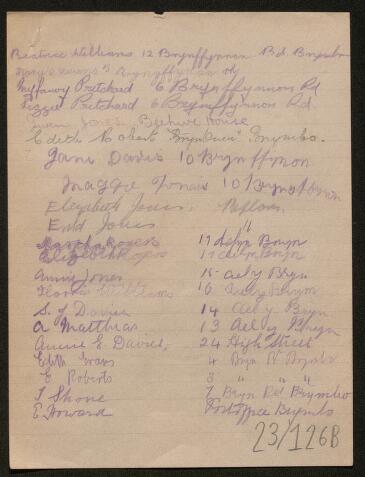 Beatrice Williams 12 Brynffynnon Rd Brymbo
Gwfawy Pritchard 6 Brynffynnon Rd
Lizzie Pritchard 6 Brynffynnon Rd.
Jones, Beehive House
Edith Roberts Brymbo.
Jane Davis 10 Brynffynon
Maggie 10 Brynffynnon
Elizabeth Jones,
Enid Jones "
Martha Rogers 17 Aelyn Bryn
Elizabeth Rogers 17 Aelyn Bryn
Annie Jones 15 Ael y Bryn
Williams 16 Ael y Bryn
S. J. Davies 14 Ael y Bryn
A Matthias 13 Ael y Bryn
Annie E. Davies, 24 High Street
Edith Evans 4 Bryn Rd Brymbo
E Roberts 3 " " "
J Shone 7 Bryn Rd Brymbo
E. Forward Post Office Brymbo
23/126B